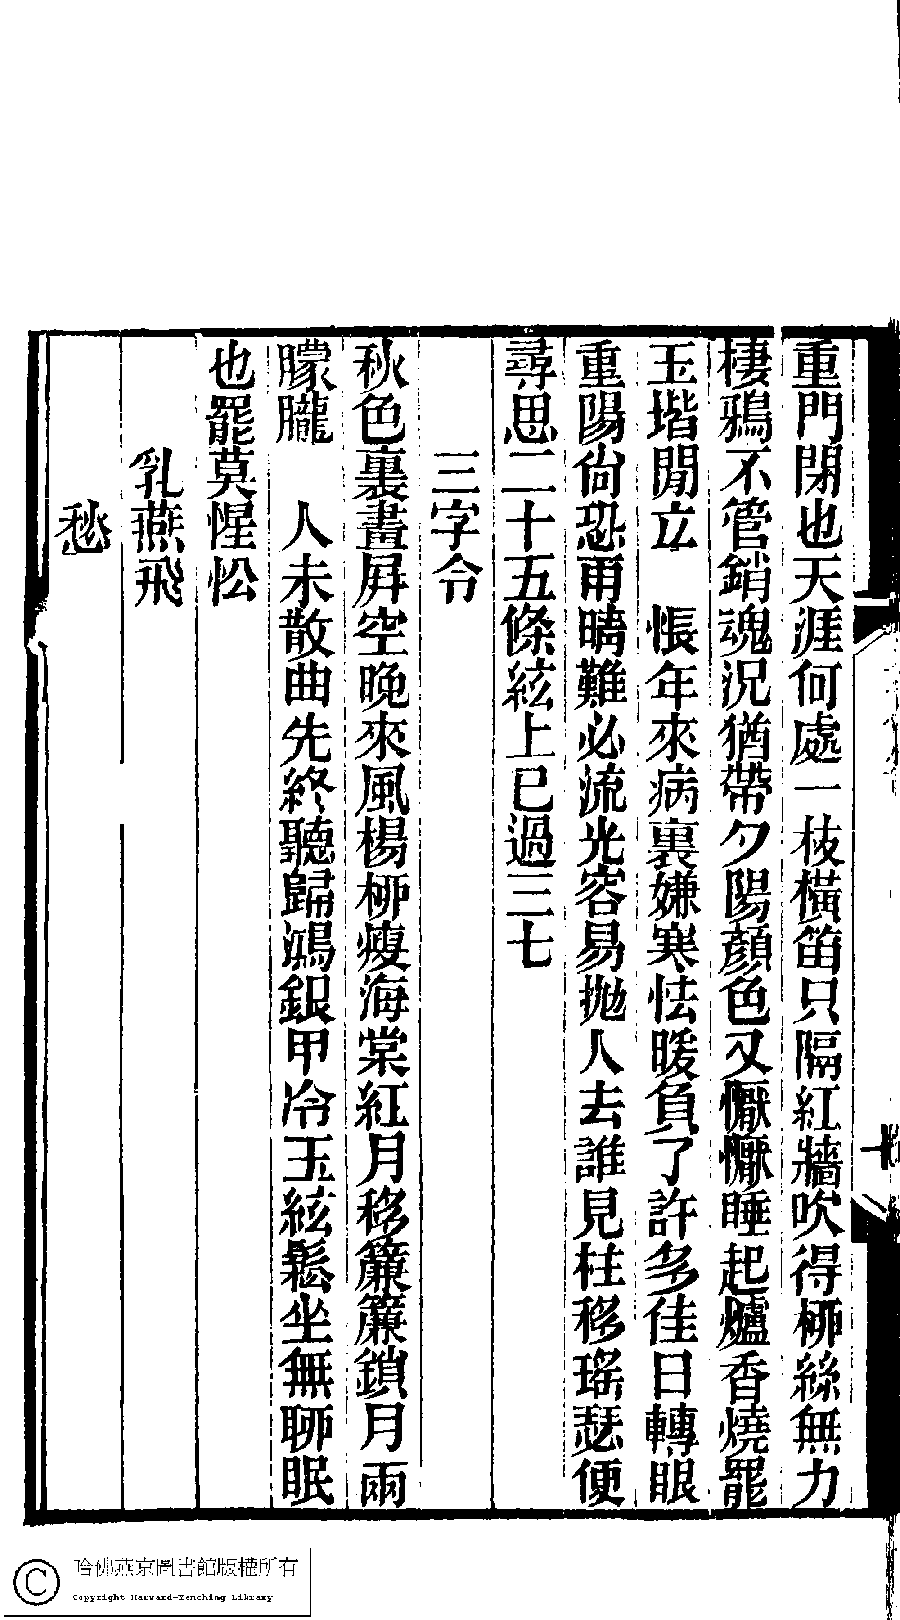 重門閉也天涯何處一枝橫笛只隔紅牆吹得柳絲無力
棲鴉不管銷魂況猶帶夕陽顏色又懨懨睡起爐香燒罷
玉堦閒立　悵年來病裏嫌寒怯暖負了許多佳日轉眼
重陽尙恐雨晴難必流光容易拋人去誰見柱移瑤瑟便
尋思二十五條絃上已過三七
三字令
秋色裏畫屛空晚來風楊柳瘦海棠紅月移簾簾鎖月兩
朦朧　人未散曲先終聽歸鴻銀甲冷玉絃鬆坐無聊眠
也罷莫惺忪
乳燕飛
愁
十
哈佛燕京圖書館版權所有
Copyright Harvard-Yenching Library